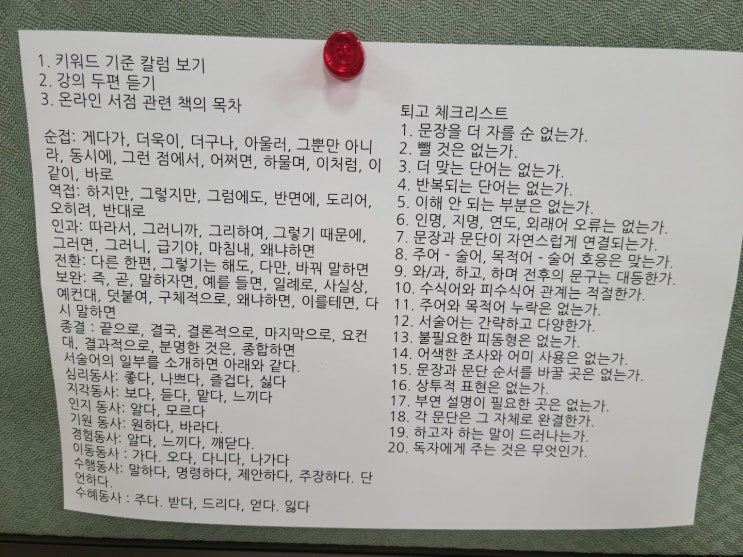 1. 키워드 기준 칼럼 보기
2. 강의 두편 듣기
3. 온라인 서점 관련 책의 목차
순접: 게다가, 더욱이, 더구나, 아울러, 그뿐만 아니
라, 동시에, 그런 점에서, 어쩌면, 하물며, 이처럼, 이
같이, 바로
역접: 하지만, 그렇지만, 그럼에도, 반면에, 도리어,
오히려, 반대로
인과: 따라서, 그러니까, 그리하여, 그렇기 때문에,
그러면, 그러니, 급기야, 마침내, 왜냐하면
전환: 다른 한편, 그렇기는 해도, 다만, 바꿔 말하면
보완: 즉, 곧, 말하자면, 예를 들면, 일례로, 사실상,
예컨대, 덧붙여, 구체적으로, 왜냐하면, 이를테면, 다
시 말하면
종결 : 끝으로, 결국, 결론적으로, 마지막으로, 요컨
대, 결과적으로, 분명한 것은, 종합하면
서술어의 일부를 소개하면 아래와 같다.
심리동사: 좋다, 나쁘다, 즐겁다, 싫다
지각동사: 보다, 듣다, 맡다, 느끼다
인지 동사: 알다, 모르다
기원 동사: 원하다, 바라다.
경험동사: 알다, 느끼다, 깨닫다.
이동동사 : 가다. 오다, 다니다, 나가다
수행동사: 말하다, 명령하다, 제안하다, 주장하다. 단
언하다.
수혜동사 : 주다. 받다, 드리다, 얻다. 잃다
퇴고 체크리스트
1. 문장을 더 자를 순 없는가.
2. 뺄 것은 없는가.
3. 더 맞는 단어는 없는가.
4. 반복되는 단어는 없는가.
5. 이해 안 되는 부분은 없는가.
6. 인명, 지명, 연도, 외래어 오류는 없는가.
7. 문장과 문단이 자연스럽게 연결되는가.
8. 주어 - 술어, 목적어 - 술어 호응은 맞는가.
9. 와/과, 하고, 하며 전후의 문구는 대등한가.
10. 수식어와 피수식어 관계는 적절한가.
11. 주어와 목적어 누락은 없는가.
12. 서술어는 간략하고 다양한가.
13. 불필요한 피동형은 없는가.
14. 어색한 조사와 어미 사용은 없는가.
15. 문장과 문단 순서를 바꿀 곳은 없는가.
16. 상투적 표현은 없는가.
17. 부연 설명이 필요한 곳은 없는가.
18. 각 문단은 그 자체로 완결한가.
19. 하고자 하는 말이 드러나는가.
20. 독자에게 주는 것은 무엇인가.